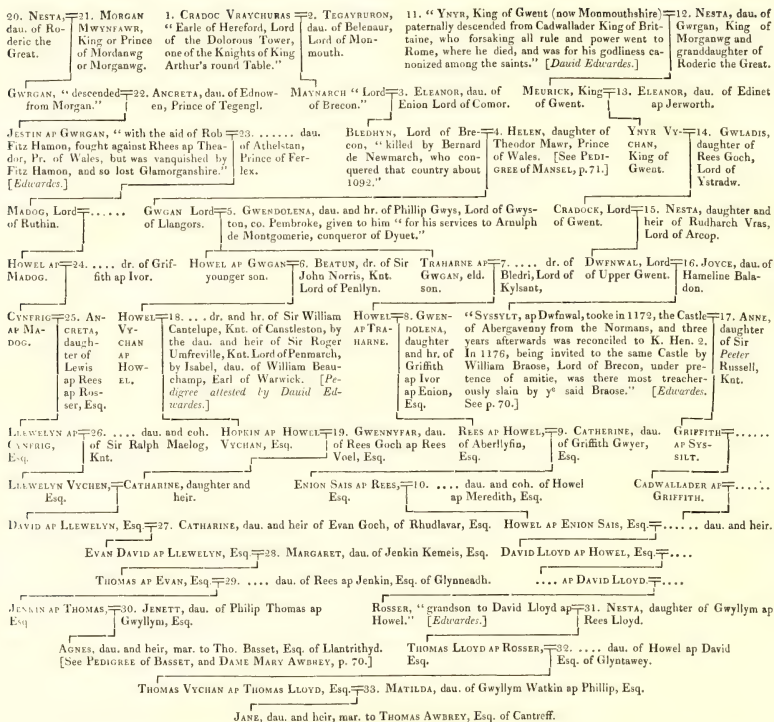 20. NESTA, dau. of Roderic the Great. = 21. MORGAN MWYNFAWR, King or Prince of Mordanwg or Morganwg.
1. CRADOC VRAYCHURAS “Earle of Hereford, Lord of the Dolorous Tower, one of the Knights of King Arthur's round Table.” = 2. TEGAYRURON, dau. of Belenaur, Lord of Monmouth.
11. “YNYR, King of Gwent (now Monmouthshire) paternally descended from Cadwallader King of Brittaine, who forsaking all rule and power went to Rome, where he died, and was for his godliness canonized among the saints.” [Dauid Edwardes.] = 12. NESTA, dau. of Gwrgan, King of Morganwg and granddaughter of Roderic the Great.
GWRGAN, “descended from Morgan.” = 22. ANCRETA, dau. of Ednowen, Prince of Tegengl.
MAYNARCH “Lord of Brecon.” = 3. ELEANOR, dau. of Enion Lord of Comor.
MEURICK, King of Gwent. = 13. ELEANOR, dau. of Edinet ap Jerworth.
JESTIN AP GWRGAN, “with the aid of Rob Fitz Hamon, fought against Rhees ap Theador, Pr. of Wales, but was vanquished by Fitz Hamon, and so lost Glamorganshire.” [Edwardes.] = 23. ...... dau. of Athelstan, Prince of Ferlex.
BLEDHYN, Lord of Brecon, “killed by Bernard de Newmarch, who conquered that country about 1092.” = 4. HELEN, daughter of Theodor Mawr, Prince of Wales. [See PEDIGREE OF MANSEL, p. 71.]
YNYR VYCHAN, King of Gwent. = 14. GWLADIS, daughter of Rees Goch, Lord of Ystradw.
MADOG, Lord of Ruthin. = ......
GWGAN Lord of Llangors. = 5. GWENDOLENA, dau. and hr. of Phillip Gwys, Lord of Gwyston, co. Pembroke, given to him “for his services to Arnulph de Montgomerie, conqueror of Dyuet.”
CRADOCK, Lord of Gwent. = 15. NESTA, daughter and heir of Rudharch Vras, Lord of Arcop.
HOWEL AP MADOG. = 24. .... dr. of Griffith ap Ivor.
HOWEL AP GWGAN younger son. = 6. BEATUN, dr. of Sir John Norris, Knt. Lord of Penllyn.
TRAHARNE AP GWGAN, eld. son. = 7. .... dr. of Bledri, Lord of Kylsant,
DWFNWAL, Lord of Upper Gwent. = 16. JOYCE, dau. of Hameline Baladon.
CYNFRIG AP MADOG. = 25. ANCRETA, daughter of Lewis ap Rees ap Rosser, Esq.
HOWEL VYCHAN AP HOWEL. = 18. ... dr. and hr. of Sir William Cantelupe, Knt. of Canstleston, by the dau. and heir of Sir Roger Umfreville, Knt. Lord of Penmarch, by Isabel, dau. of William Beauchamp, Earl of Warwick. [Pedigree attested by Dauid Edwardes.]
HOWEL AP TRAHARNE. = 8. GWENDOLENA, daughter and hr. of Griffith ap Ivor ap Enion, Esq.
“SYSSYLT, ap Dwfnwal, tooke in 1172, the Castle of Abergavenny from the Normans, and three years afterwards was reconciled to K. Hen. 2. In 1176, being invited to the same Castle by William Braose, Lord of Brecon, under pretence of amitie, was there most treacherously slain by ye said Braose.” [Edwardes. See p. 70.] = 17. ANNE, daughter of Sir Peeter Russell, Knt.
LLEWELYN AP CYNFRIG, Esq. = 26. .... dau. and coh. of Sir Ralph Maelog, Knt.
HOPKIN AP HOWEL VYCHAN, Esq. = 19. GWENNYFAR, dau. of Rees Goch ap Rees Voel, Esq.
REES AP HOWEL, of Aberllyfin, Esq. = 9. CATHERINE, dau. of Griffith Gwyer, Esq.
GRIFFITH AP SYSSILT. = ......
LLEWELYN VYCHEN, Esq. = CATHARINE, daughter and heir.
ENION SAIS AP REES, Esq. = 10. .... dau. and coh. of Howel ap Meredith, Esq.
CADWALLADER AP GRIFFITH. = ......
DAVID AP LLEWELYN, Esq. = 27. CATHARINE, dau. and heir of Evan Goch, of Rhudlavar, Esq.
HOWEL AP ENION SAIS, Esq. = ...... dau. and heir.
EVAN DAVID AP LLEWELYN, Esq. = 28. MARGARET, dau. of Jenkin Kemeis, Esq.
DAVID LLOYD AP HOWEL, Esq. = ....
THOMAS AP EVAN, Esq. = 29. .... dau. of Rees ap Jenkin, Esq. of Glynneadh.
.... AP DAVID LLOYD. = ....
JENKIN AP THOMAS, Esq = 30. JENETT, dau. of Philip Thomas ap Gwyllym, Esq.
ROSSER, “grandson to David Lloyd ap Howel.” [Edwardes.] = 31. NESTA, daughter of Gwyllym ap Rees Lloyd.
AGNES, dau. and heir, mar. to Tho. Basset, Esq. of Llantrithyd. [See PEDIGREE OF BASSET, and DAME MARY AWBREY, p. 70.]
THOMAS LLOYD AP ROSSER, Esq. = 32. .... dau. of Howel ap David Esq. of Glyntawey.
THOMAS VYCHAN AP THOMAS LLOYD, Esq. = 33. MATILDA, dau. of Gwyllym Watkin ap Phillip, Esq.
JANE, dau. and heir, mar. to THOMAS AWBREY, Esq. of Cantreff.